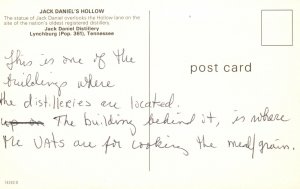 JACK DANIEL'S HOLLOW
The statue of Jack Daniel overlooks the Hollow lane on the
site of the nation's oldest registered distillery.
Jack Daniel Distillery
Lynchburg (Pop. 361), Tennessee
This is one of the
buildings where
the distilleries are located.
up on The building behind it, is where
the VATs are for cooking the meal/grain.
post card